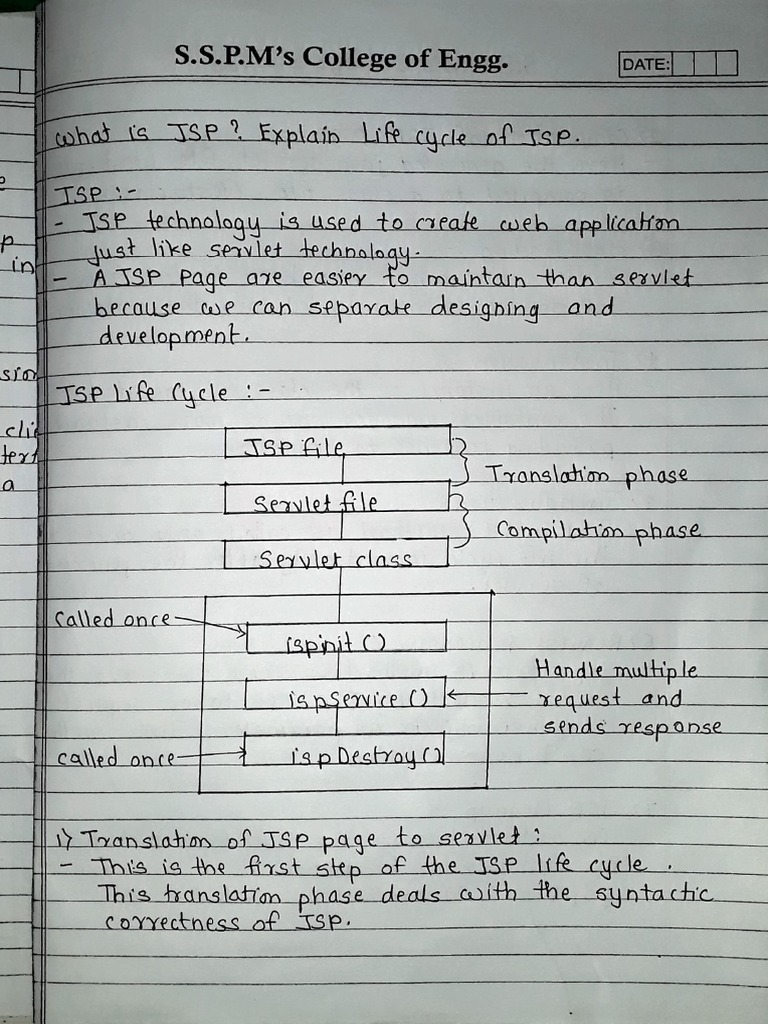 S.S.P.M's College of Engg.
DATE:
What is JSP? Explain Life cycle of JSP.
JSP :-
- JSP technology is used to create web application
just like servlet technology.
- A JSP page are easier to maintain than servlet
because we can separate designing and
development.
JSP Life Cycle :-
JSP file
Translation phase
Servlet file
Compilation phase
Servlet class
Called once
jspinit()
jspService()
Handle multiple
request and
sends response
called once
jspDestroy()
1) Translation of JSP page to servlet :
- This is the first step of the JSP life cycle.
This translation phase deals with the syntactic
correctness of JSP.
p
in
sion
text
a